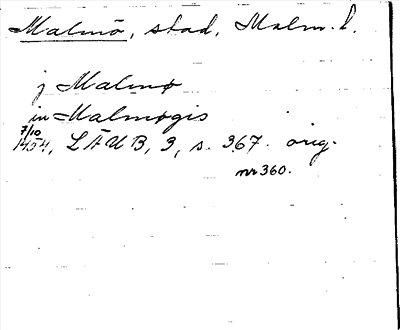 Malmö, stad, Malm. l.
j Malmø
in Malmøgis
7/10
1454, L Ä U B, 3, s. 367. orig.
nr 360.